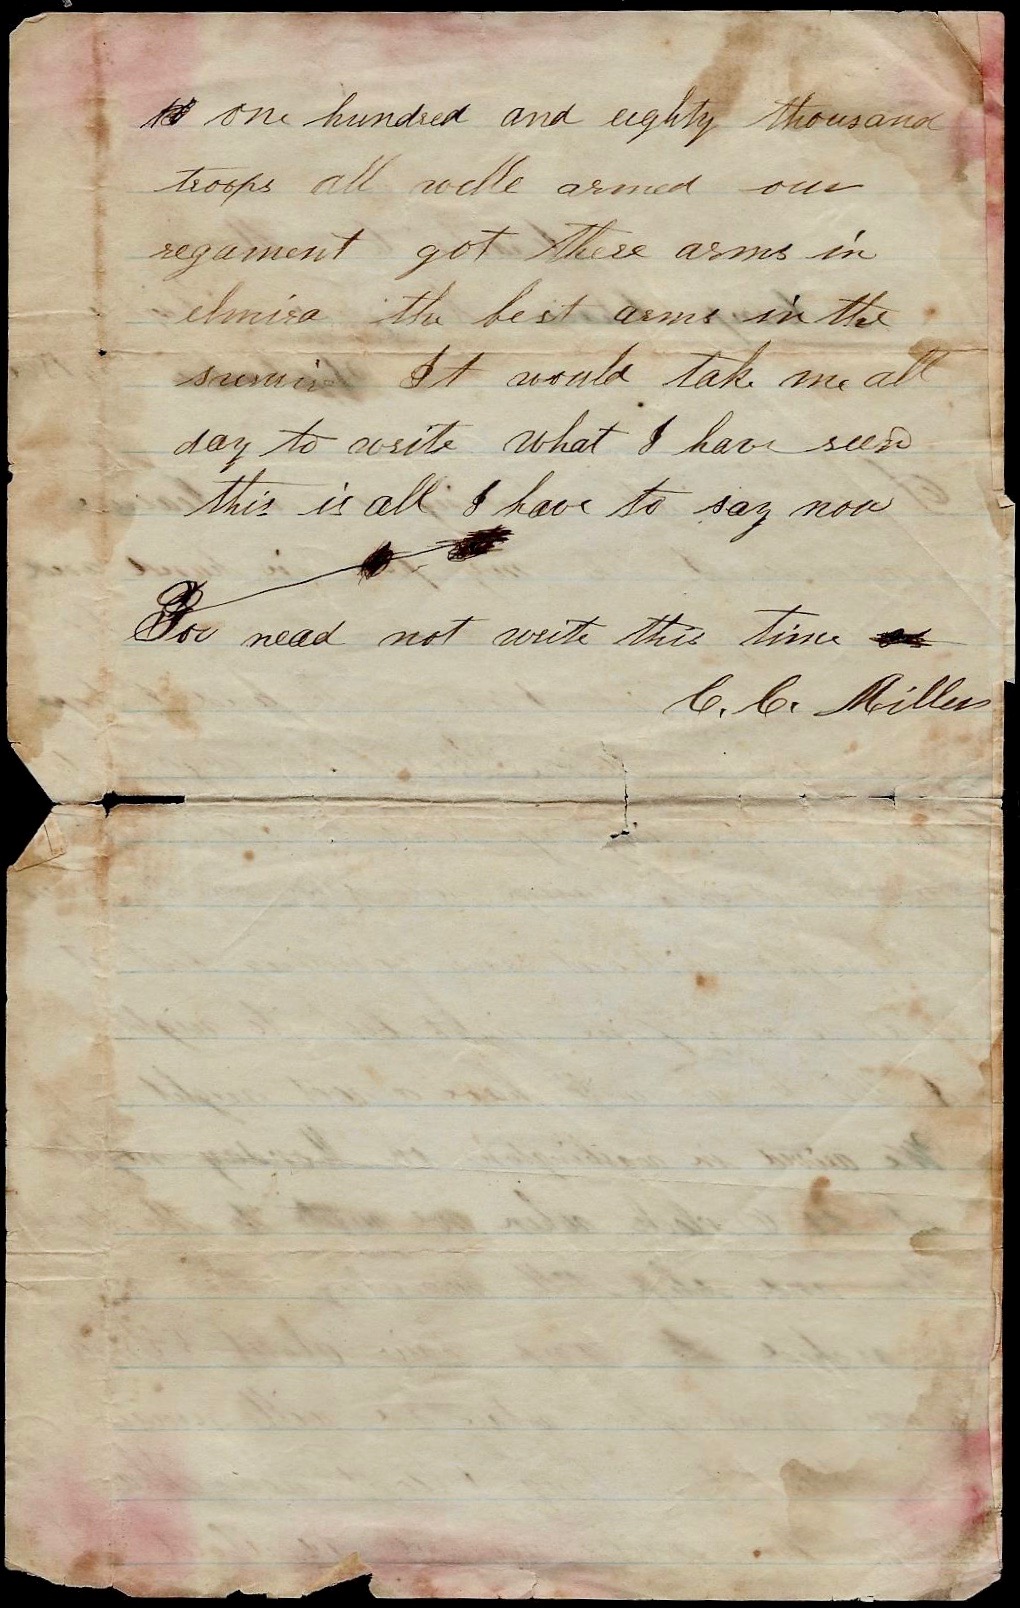 one hundred and eighty thousand
troops all welle armed our
regament got there arms in
elmira the best arms in the
It would take me all
day to write what I have seen
this is all I have to say now
You nead not write this time
C. C. Miller